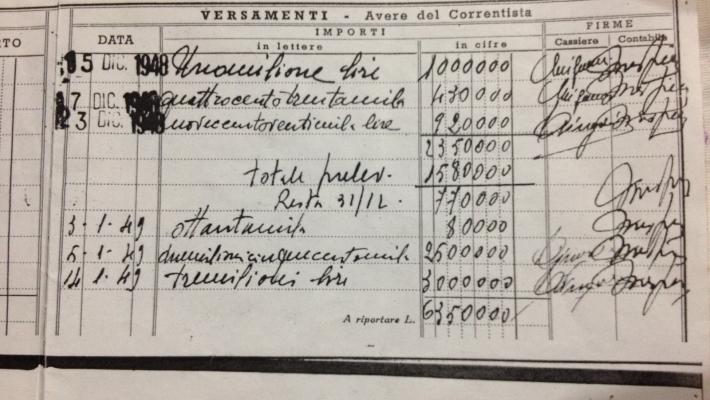 VERSAMENTI - Avere del Correntista
DATA IMPORTI FIRME
in lettere in cifre Cassiere Contabile
15 DIC. 1948 Unomilione lire 1000000
17 DIC. 1948 quattrocentotrentamila 430000
23 DIC. 1948 novecentoventimila lire 920000
2350000
totale prelev. 1580000
Resta 31/12. 770000
3-1-49 ottantamila 80000
5-1-49 duemilionicinquecentomila 2500000
14-1-49 tremilioni lire 3000000
A riportare L. 6350000